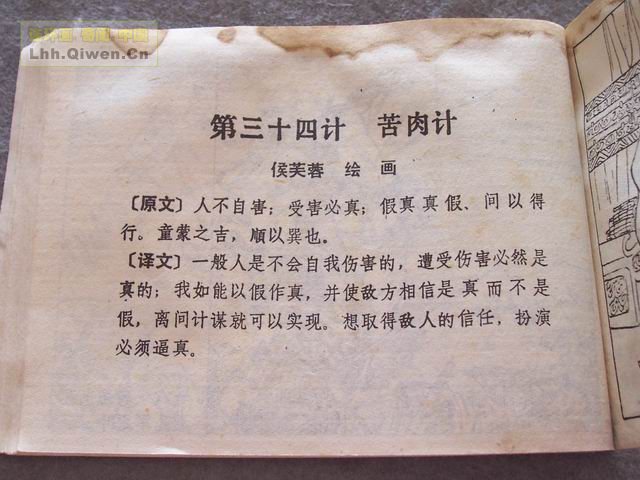 Lhh.Qiwen.Cn
第三十四计 苦肉计
侯芙蓉 绘 画
〔原文〕人不自害；受害必真；假真真假、间以得
行。童蒙之吉，顺以巽也。
〔译文〕一般人是不会自我伤害的，遭受伤害必然是
真的；我如能以假作真，并使敌方相信是真而不是
假，离间计谋就可以实现。想取得敌人的信任，扮演
必须逼真。